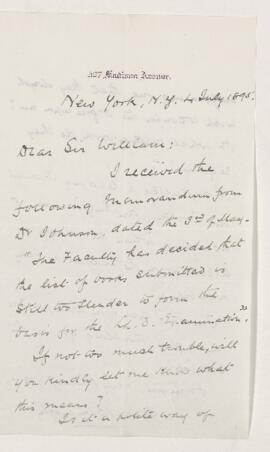 327 Madison Avenue.
New York, N.Y. 4 July 1895.
Dear Sir William:
I received the
following memorandum from
Dr Johnson, dated the 3rd of May.
"The Faculty has decided that
the list of books submitted is
still too slender to form the
basis for the LL. D. Examination."
If not too much trouble, will
you kindly let me know what
this means?
Is it a polite way of